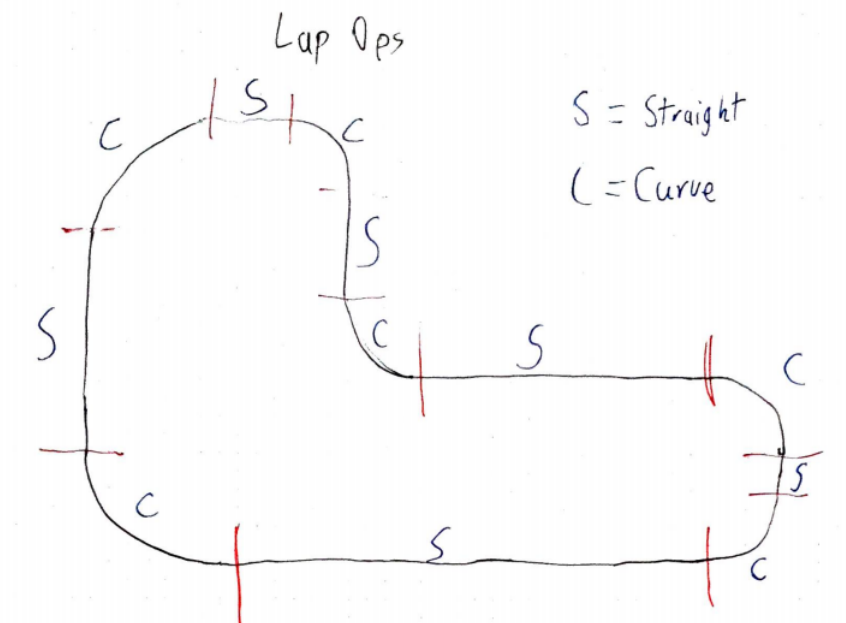 Lap Ops
S
C
C
S = Straight
C = Curve
S
S
C
S
C
S
C
S
C